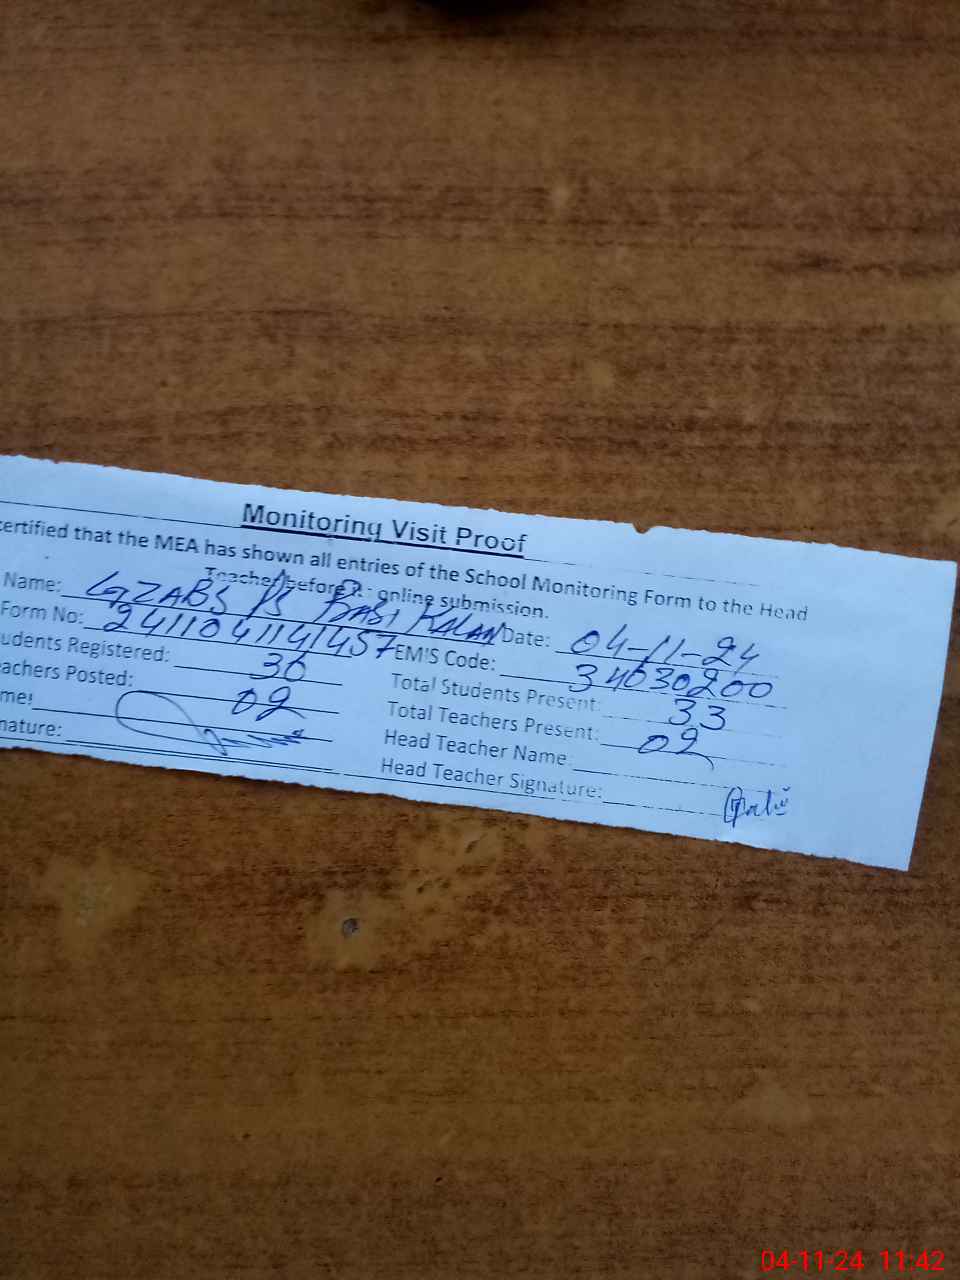 Monitoring Visit Proof
certified that the MEA has shown all entries of the School Monitoring Form to the Head
Teacher before online submission.
Name: GZABS PS BASI KALAN Date: 04-11-24
Form No: 2411041141457 EMIS Code: 34030200
udents Registered: 36 Total Students Present: 33
eachers Posted: 02 Total Teachers Present: 02
me: Head Teacher Name:
nature: Head Teacher Signature:
04-11-24 11:42